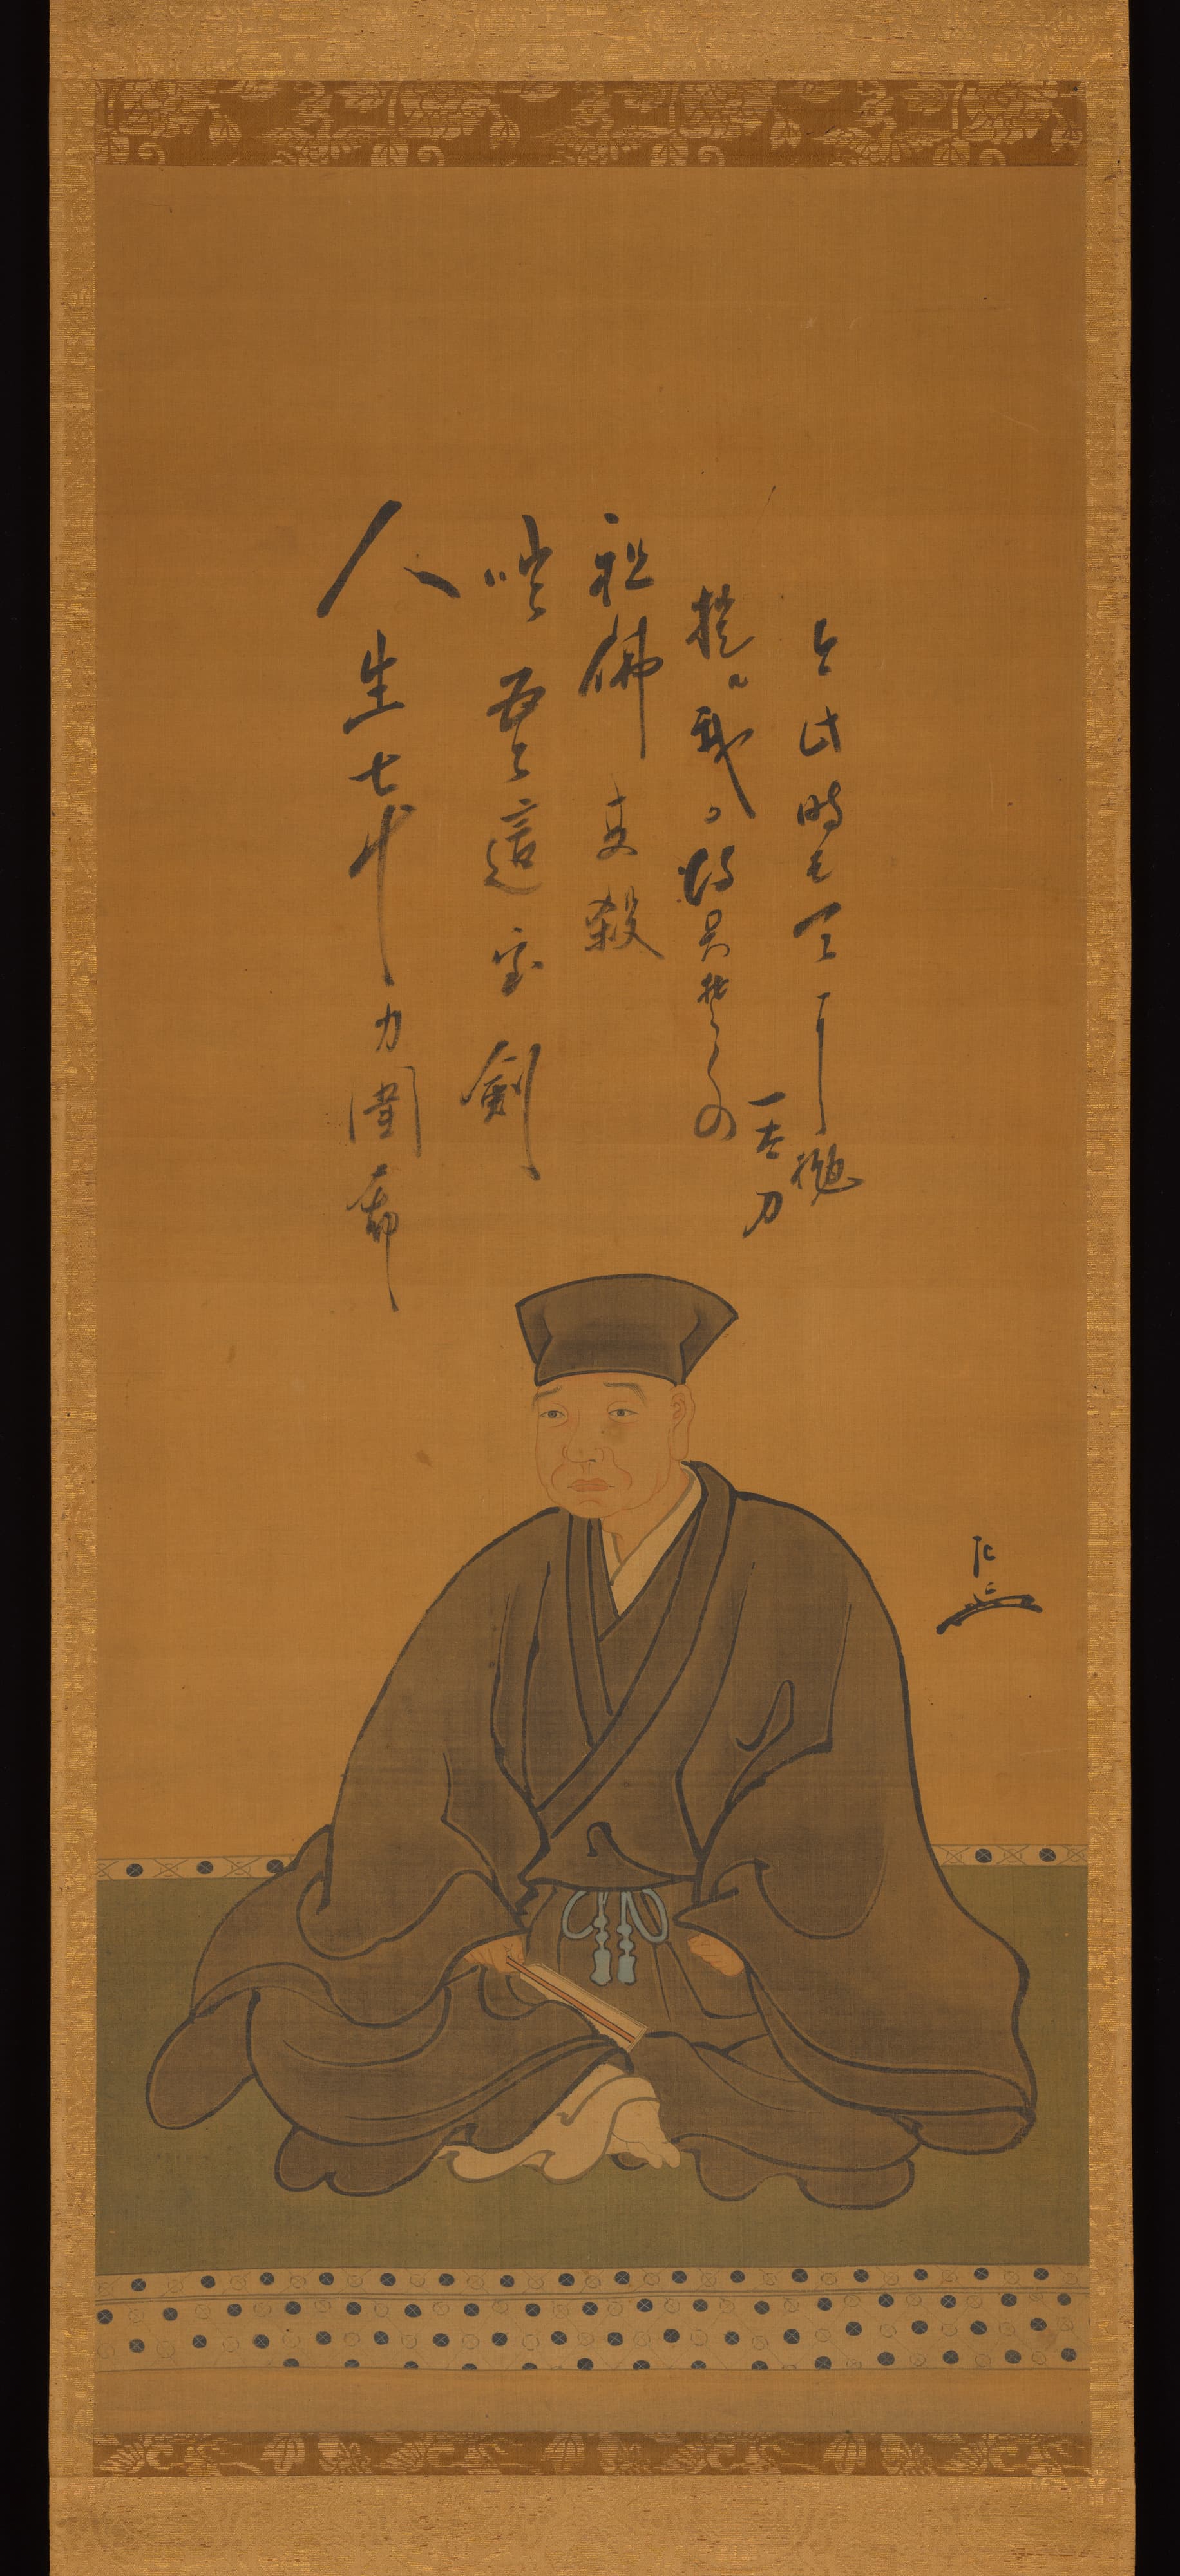 人生七十力囲希
咄吾々這宝剣
祖佛共殺
提ル我得具足の
一太刀
今此時そ天に抛